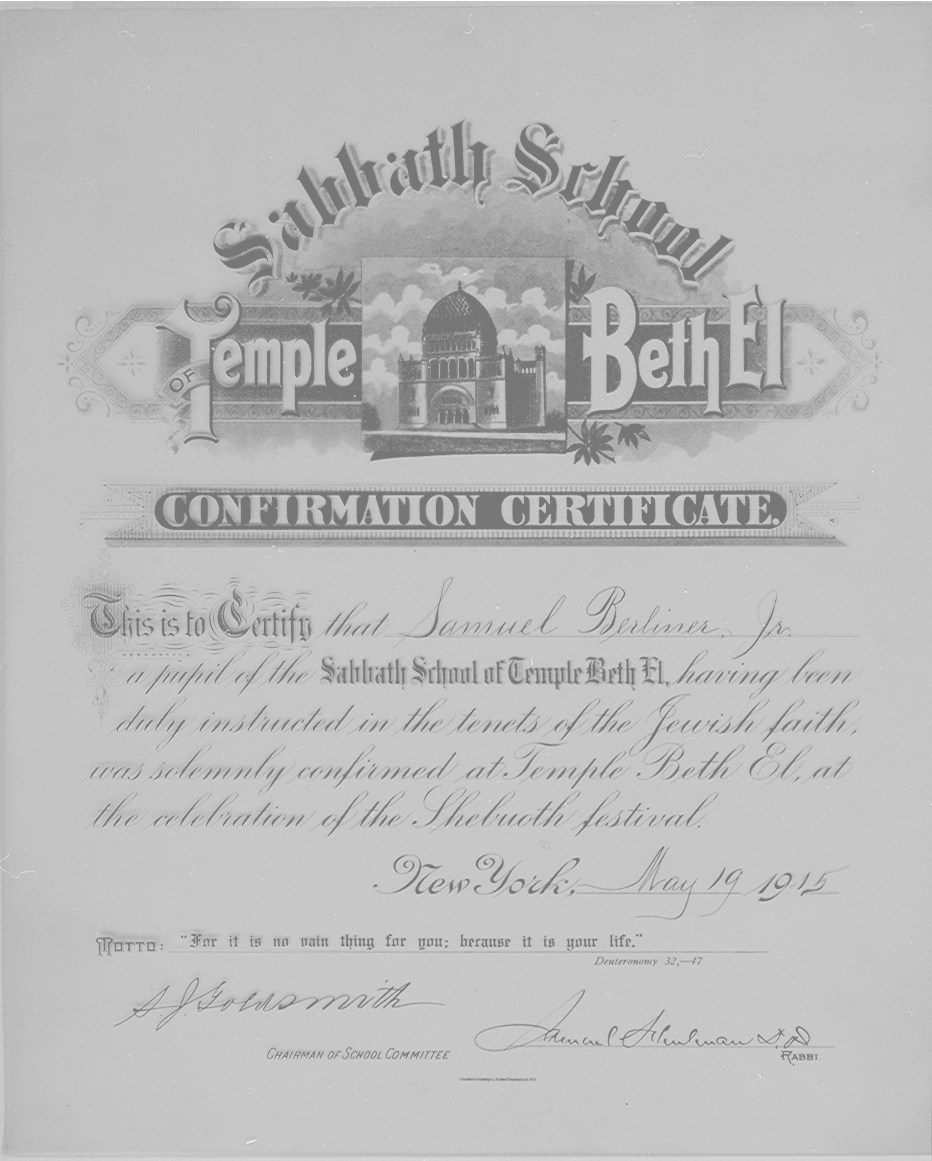 Sabbath School
OF Temple Beth El
CONFIRMATION CERTIFICATE.
This is to Certify that Samuel Berliner, Jr.
a pupil of the Sabbath School of Temple Beth El, having been
duly instructed in the tenets of the Jewish faith,
was solemnly confirmed at Temple Beth El, at
the celebration of the Shebuoth festival.
New York, May 19 1915
MOTTO: "For it is no vain thing for you; because it is your life."
Deuteronomy 32,—47
S. J. Goldsmith
CHAIRMAN OF SCHOOL COMMITTEE
Samuel Schulman D.D.
RABBI.